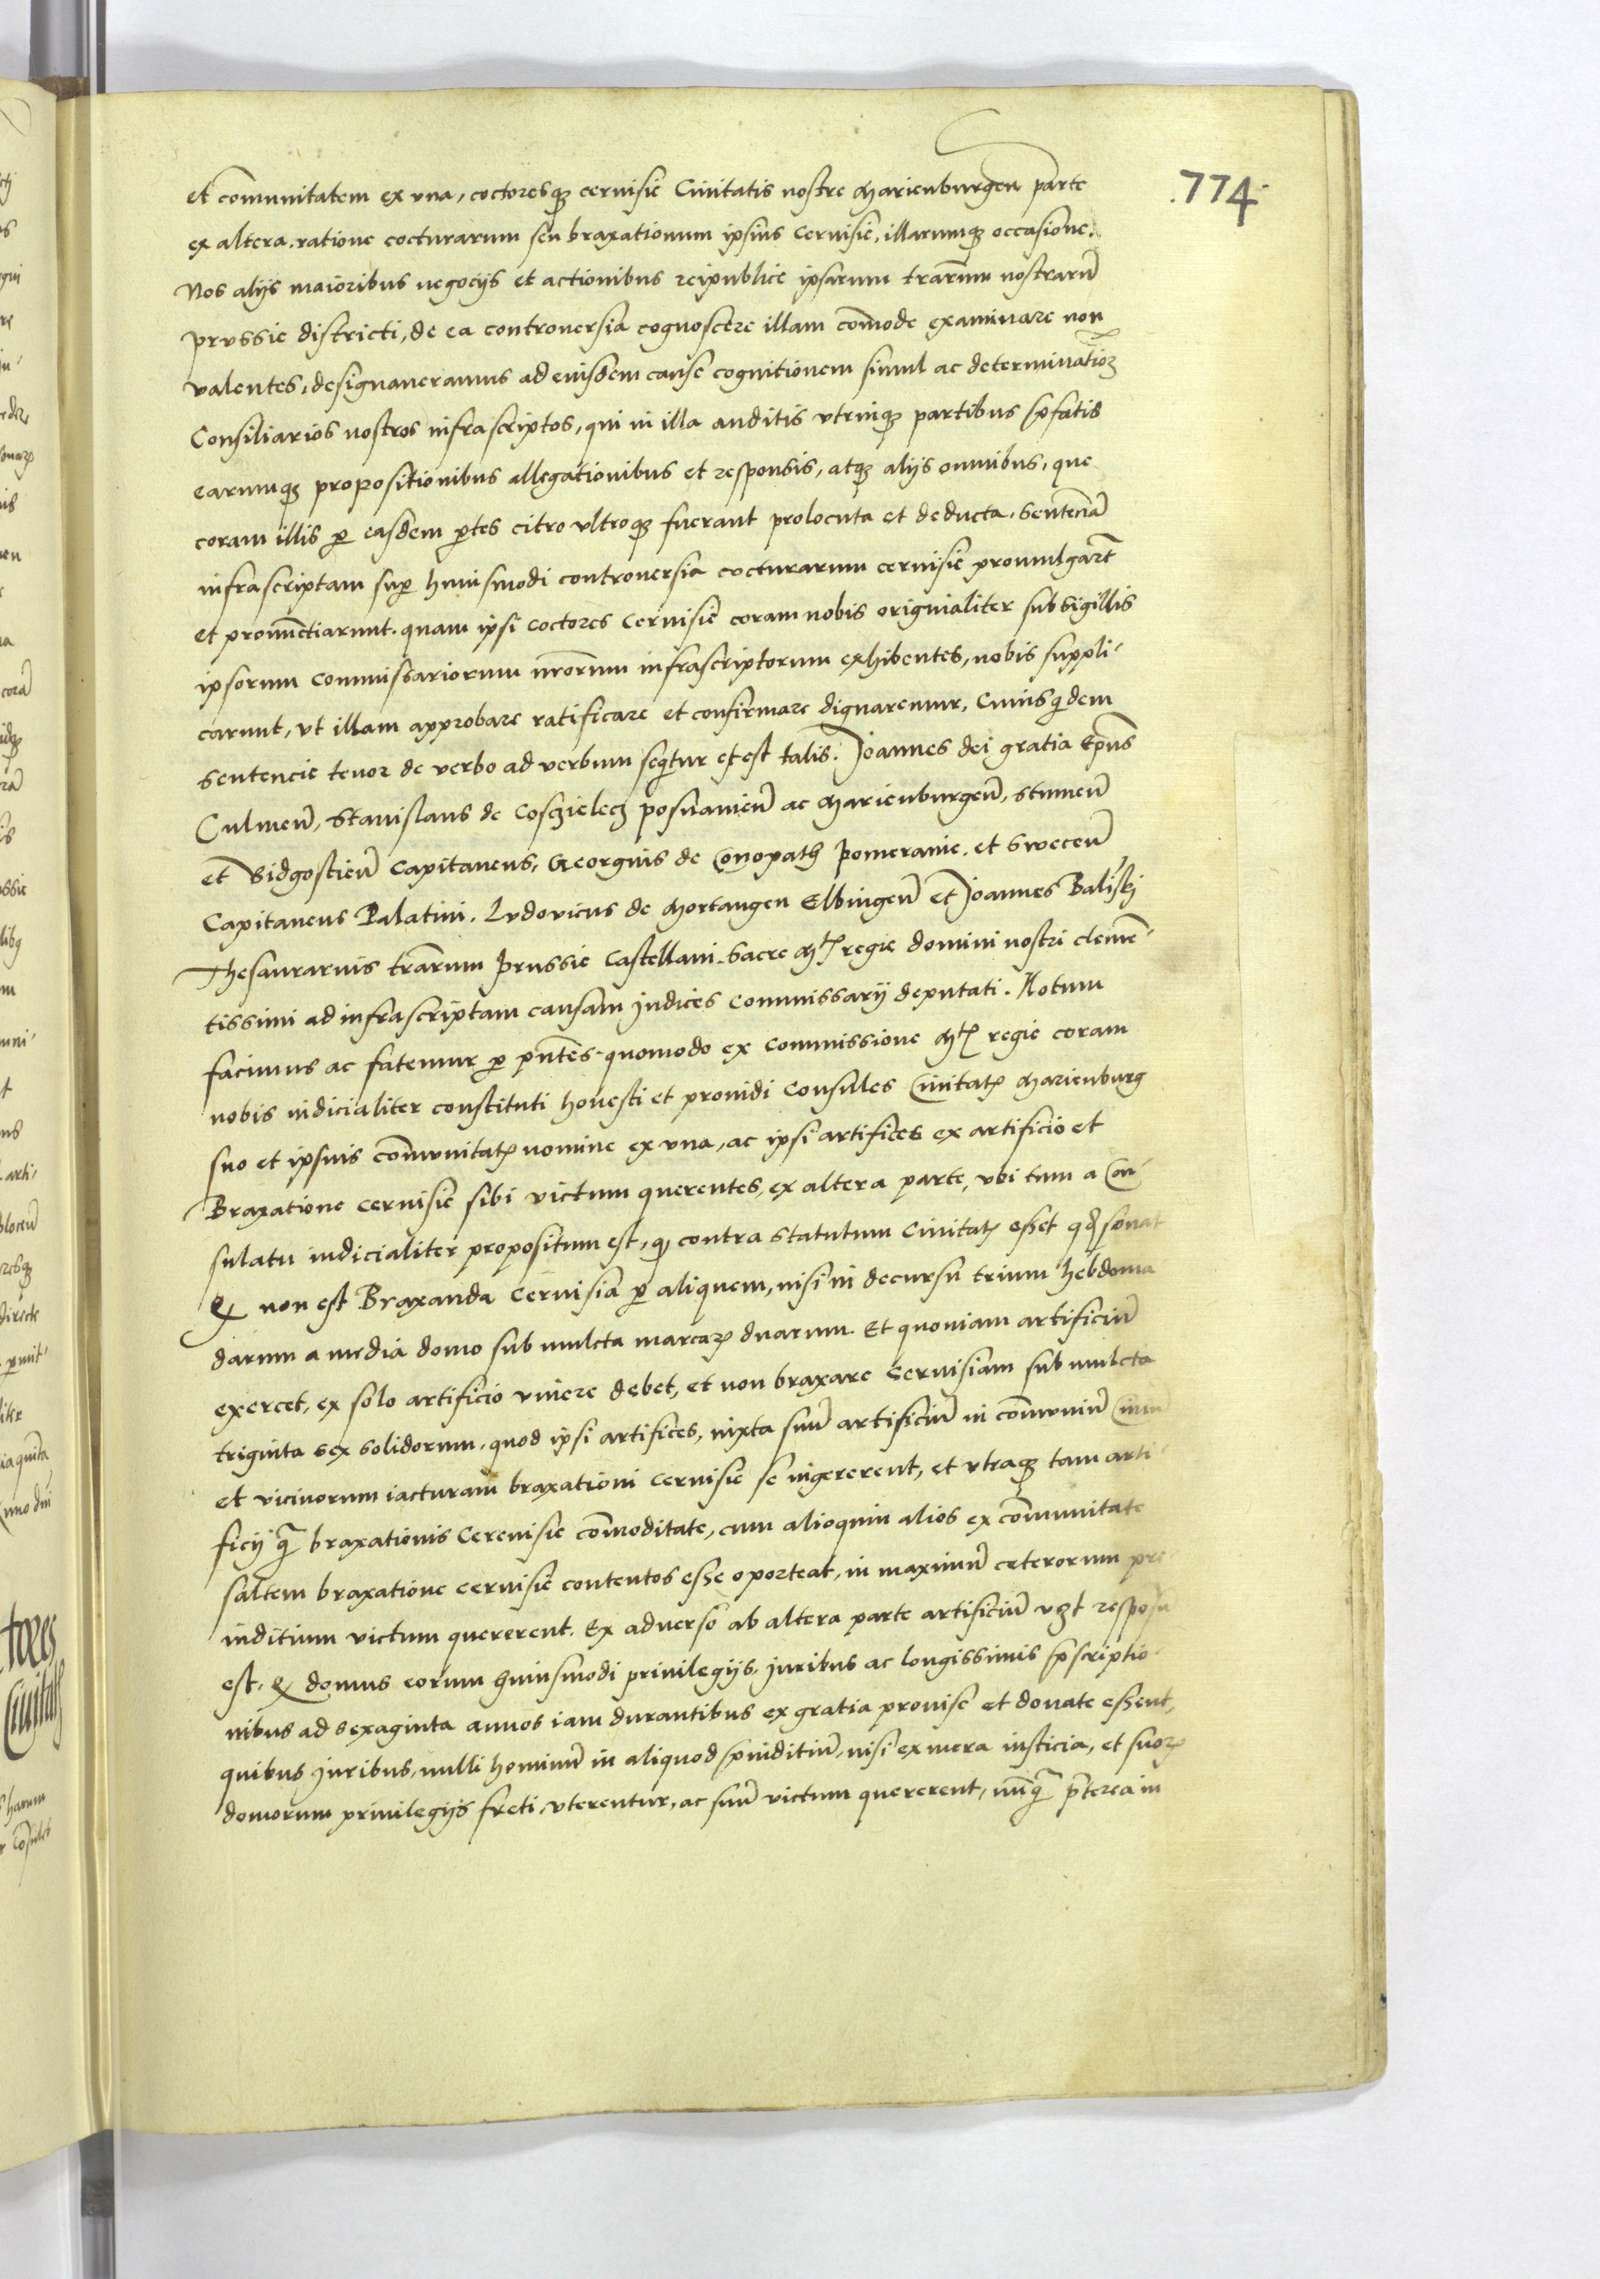 .774.
et com̃unitatem ex vna, coctoresq3 ceruisie Ciuitatis nostre Marienburgen̄ parte
ex altera, ratione cocturarum seu braxationum ipsius Ceruisie, illarumq3 occasione.
Nos alijs maioribus negocijs et actionibus reipublice ipsarum tr̄arum nostrarū
prussie districti, de ea controuersia cognoscere illam com̄ode examinare non
valentes, designaueramus ad eiusdem cause cognitionem simul ac determinatioȝ
Consiliarios nostros infrascriptos, qui in illa auditis vtrinq3 partibus p̄fatis
earumq3 propositionibus allegationibus et responsis, atq3 alijs omnibus, que
coram illis ꝑ easdem ꝑtes citro vltroq3 fuerant prolocuta et deducta, sentenciā
infrascriptam suꝑ huiusmodi controuersia cocturarum ceruisie promulgarūt
et pronūctiarunt. quam ipsi coctores Ceruisie coram nobis originaliter sub sigillis
ipsorum Commissariorum nr̄orum infrascriptorum exhibentes, nobis suppli-
carunt, vt illam approbare ratificare et confirmare dignaremur, Cuius q̇dem
sentencie tenor de verbo ad verbum seq̇tur et est talis. Joannes dei gratia Ep̄us
Culmen̄, Stanislaus de Cosczielecz posnanien̄ ac Marienburgen̄, Stumen̄
et Bidgostien̄ Capitaneus, Georgius de Conopath pomeranie. et Swecen̄
Capitaneus Palatini. Ludouicus de Mortangen Elbingen̄ et Joannes Baliski
Thesaurarius tr̄arum Prussie Castellani. Sacre M̄tis regie domini nostri clemē-
tissimi ad infrascriptam causam judices Commissarij deputati. Notum
facimus ac fatemur ꝑ pn̄tes. quomodo ex Commissione M̄tis regie coram
nobis iudicialiter constituti honesti et prouidi Consules Ciuitatꝭ Marienburg
suo et ipsius com̄unitatꝭ nomine ex vna, ac ipsi artifices ex artificio et
Braxatione ceruisie sibi victum querentes, ex altera parte, vbi tum a Con-
sulatu iudicialiter propositum est, q̧ contra statutum Ciuitatꝭ esset qd̄ sonat
Q̧ non est Braxanda Ceruisia ꝑ aliquem, nisi in decursu trium hebdoma
darum a media domo sub mulcta marcaꝝ duarum. Et quoniam artificiū
exercet, ex solo artificio viuere debet, et non braxare Seruisiam sub mulcta
triginta sex solidorum. quod ipsi artifices, iuxta suū artificiū in com̄uniū
et vicinorum iacturam braxationi ceruisie se ingererent, et vtraq3 tam arti
ficij q̄ braxationis Cereuisie com̄oditate, cum alioquin alios ex com̄unitate
saltem braxatione ceruisie contentos esse oporteat, in maximū ceterorum pre
iuditium victum quererent. Ex aduerso ab altera parte artificiū vꝫt resposū
est. Q̧ domus eorum huiusmodi priuilegijs. juribus ac longissimis p̄scriptio-
nibus ad sexaginta annos iam durantibus ex gratia prouise et donate essent,
quibus juribus, nulli hominū in aliquod p̄iuditiū, nisi ex mera iusticia, et suoꝝ
domorum priuilegijs freti, vterentur, ac suū victum quererent, nūq̄ p̄terea in